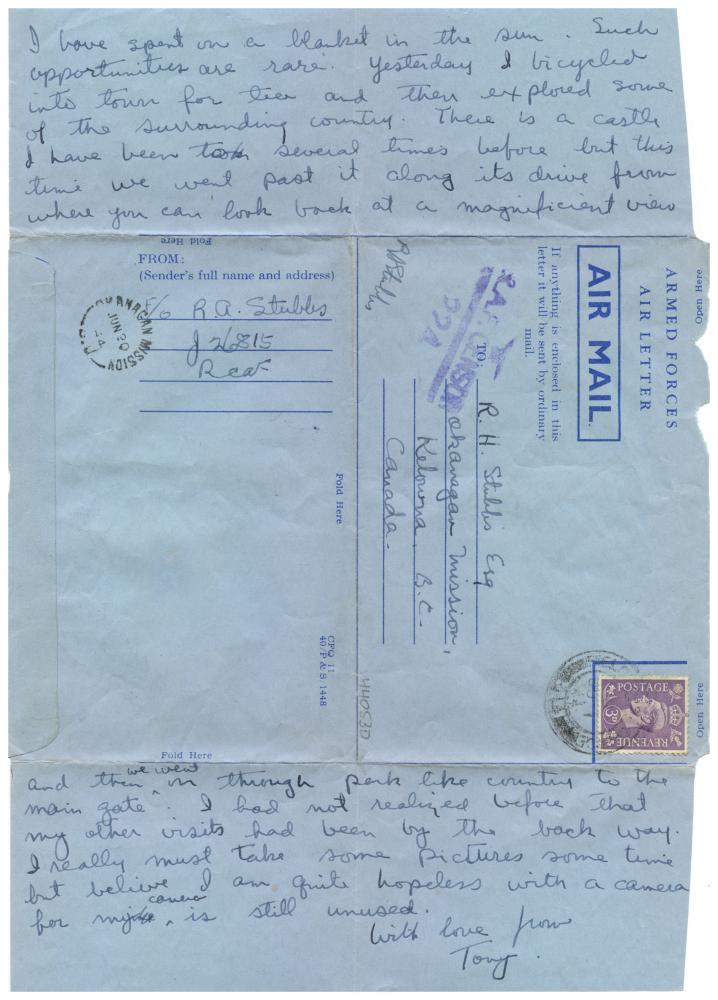 I have spent on a blanket in the sun. Such
opportunities are rare. Yesterday I bicycled
into town for tea and then explored some
of the surrounding country. There is a castle
I have been to several times before but this
time we went past it along its drive from
where you can look back at a magnificient view
Fold Here
FROM:
(Sender's full name and address)
F/O R.A. Stubbs
J 26815
RCAF
OKANAGAN MISSION
JUN 30
44
B.C.
Fold Here
CFQ 11
40/P & S 1448
Open Here
ARMED FORCES
AIR LETTER
AIR MAIL.
If anything is enclosed in this
letter it will be sent by ordinary
mail.
R.A.F. CENSOR
TO:
R. H. Stubbs Esq
Okanagan Mission,
Kelowna, B.C.
Canada.
RAStubbs
440530
POSTAGE
3D
REVENUE
Open Here
Fold Here
and then we went on through park like country to the
main gate. I had not realized before that
my other visits had been by the back way.
I really must take some pictures some time
but believe I am quite hopeless with a camera
for my camera is still unused.
With love from
Tony.